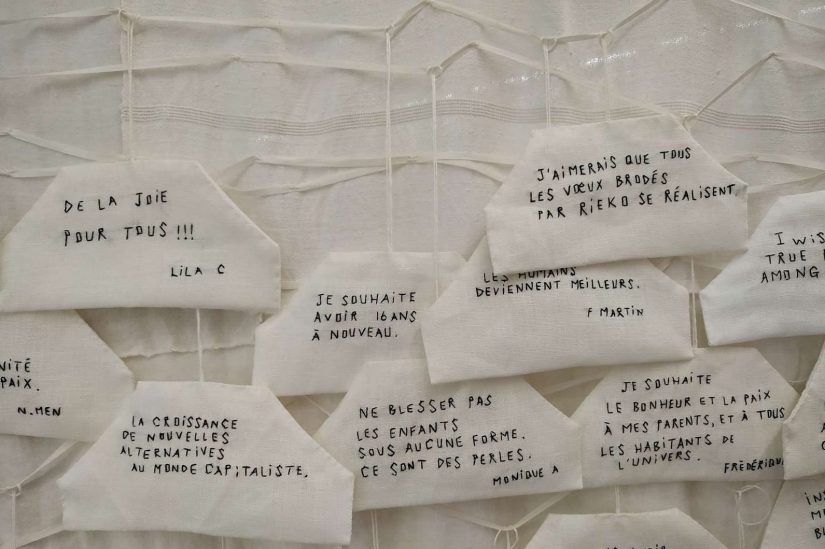 DE LA JOIE
POUR TOUS !!!
LILA C
J'AIMERAIS QUE TOUS
LES VŒUX BRODÉS
PAR RIEKO SE RÉALISENT.
I WIS
TRUE
AMONG
JE SOUHAITE
AVOIR 16 ANS
À NOUVEAU.
LES HUMAINS
DEVIENNENT MEILLEURS.
F MARTIN
NITÉ
PAIX.
N.MEN
LA CROISSANCE
DE NOUVELLES
ALTERNATIVES
AU MONDE CAPITALISTE.
NE BLESSER PAS
LES ENFANTS
SOUS AUCUNE FORME.
CE SONT DES PERLES.
MONIQUE A
JE SOUHAITE
LE BONHEUR ET LA PAIX
À MES PARENTS, ET À TOUS
LES HABITANTS DE
L'UNIVERS.
FRÉDÉRIQU